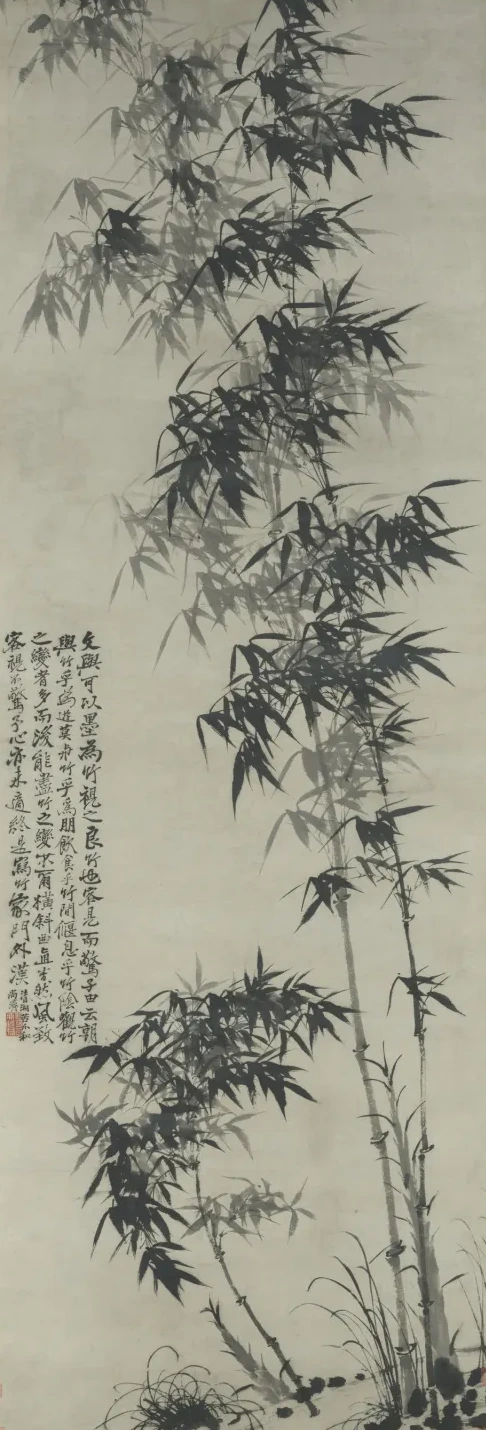 文與可以墨為竹視之良竹也客見而驚子由云朝
與竹乎為遊莫與竹乎為朋飲食乎竹間偃息乎竹陰觀竹
之變者多而後能盡竹之變  橫斜曲直  然風致
客視不驚予心亦未適終是寫竹家門外漢
清湘